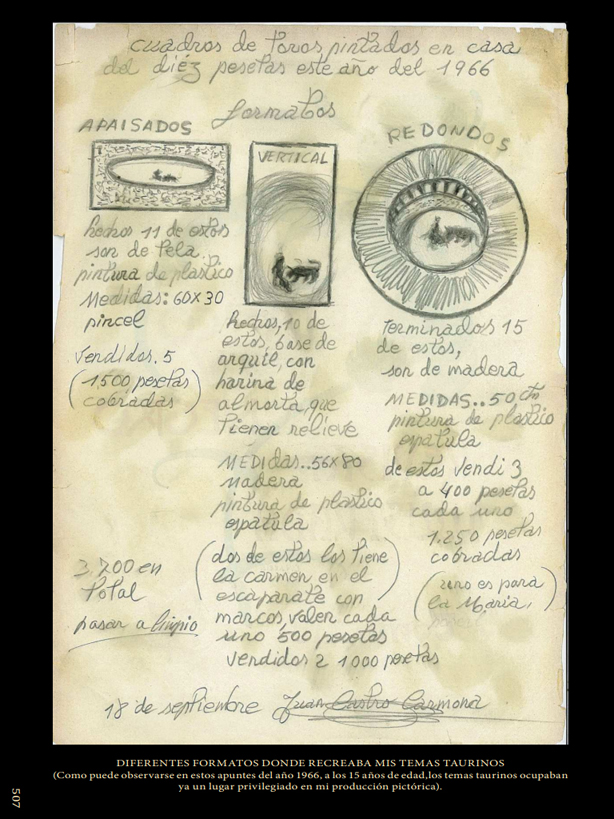 cuadros de toros pintados en casa
del diéz pesetas este año del 1966
formatos
APAISADOS
hechos 11 de estos
son de tela
pintura de plastico
Medidas: 60X30
pincel
vendidos. 5
(1500 pesetas)
cobradas
VERTICAL
hechos, 10 de
estos, base de
arquil, con
harina de
almorta, que
tienen relieve
MEDIDAS..56X80
madera
pintura de plastico
espatula
(dos de estos los tiene
la carmen en el
escaparate con
marcos, valen cada
uno 500 pesetas
vendidos 2 1000 pesetas
REDONDOS
terminados 15
de estos,
son de madera
MEDIDAS..50 Cm
pintura de plastico
espatula
de estos vendi 3
a 400 pesetas
cada uno
1.250 pesetas
cobradas
(uno es para
la Maria,)
3.700 en
total
pasar a limpio
18 de septiembre Juan Castro Carmona
DIFERENTES FORMATOS DONDE RECREABA MIS TEMAS TAURINOS
(Como puede observarse en estos apuntes del año 1966, a los 15 años de edad,los temas taurinos ocupaban
ya un lugar privilegiado en mi producción pictórica).
507